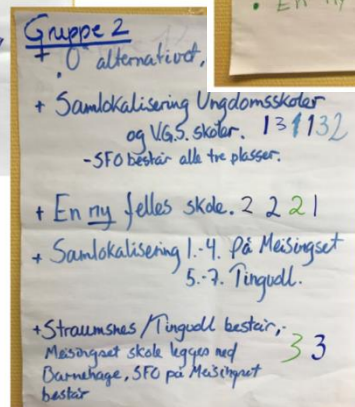 Gruppe 2
+ "0" alternativet,
+ Samlokalisering Ungdomsskoler
og V.G.S. skoler. 1 3 1 1 3 2
- SFO består alle tre plasser.
+ En ny felles skole. 2 2 2 1
+ Samlokalisering 1.-4. På Meisingset
5.-7. Tingvoll.
+ Straumsnes/Tingvoll består,
Meisingset skole legges ned 3 3
Barnehage, SFO på Meisingset
består
• En ny